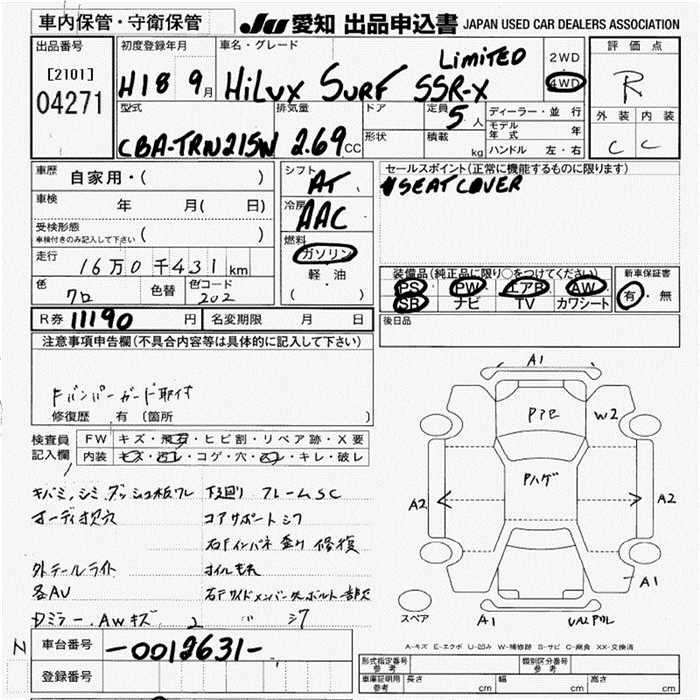 車内保管・守衛保管
JU 愛知 出品申込書 JAPAN USED CAR DEALERS ASSOCIATION
出品番号
[2101]
04271
初度登録年月
H18 9月
車名・グレード
HiLUX SURF SSR-X LIMITED
2WD
4WD
評価点
R
外装 内装
C C
型式
CBA-TRN215W
排気量
2.69 CC
ドア
形状
定員 5 人
積載 kg
ディーラー・並行
モデル年式 年
ハンドル 左・右
車歴 自家用・( )
車検 年 月( 日)
受検形態
車検付きのみ記入して下さい ( )
走行 16万0千431 km
色 クロ 色替 色コード 202
シフト
AT
冷房
AAC
燃料
ガソリン
軽油
( ・ )
セールスポイント(正常に機能するものに限ります)
SEAT COVER
装備品(純正品に限り○をつけてください)
PS PW エアB AW
SR ナビ TV カワシート
新車保証書
有・無
後日品
R券 11190 円 名変期限 月 日
注意事項申告欄(不具合内容等は具体的に記入して下さい)
Fバンパーガード取付
修復歴 有(箇所 )
検査員記入欄
FW キズ・飛石・ヒビ割・リペア跡・X要
内装 キズ・汚レ・コゲ・穴・凹レ・キレ・破レ
キバミ,シミ,ダッシュ板ワレ 下廻り フレームSC
オーディオ穴 コアサポートシワ
石Fインパネ 曲り 修復
外テールライト オイルもれ
各AU
ミラー.AWキズ
車台番号 -0012631-
登録番号
A1
Pアセ
W2
Pハゲ
A2
A2
A1
スペア
A1
A-キズ E-エクボ U-凹み W-補修跡 S-サビ C-腐食 XX-交換済
形式指定番号 参考
類別区分番号 参考
車庫証明用 参考 長さ cm 幅 cm 高さ cm